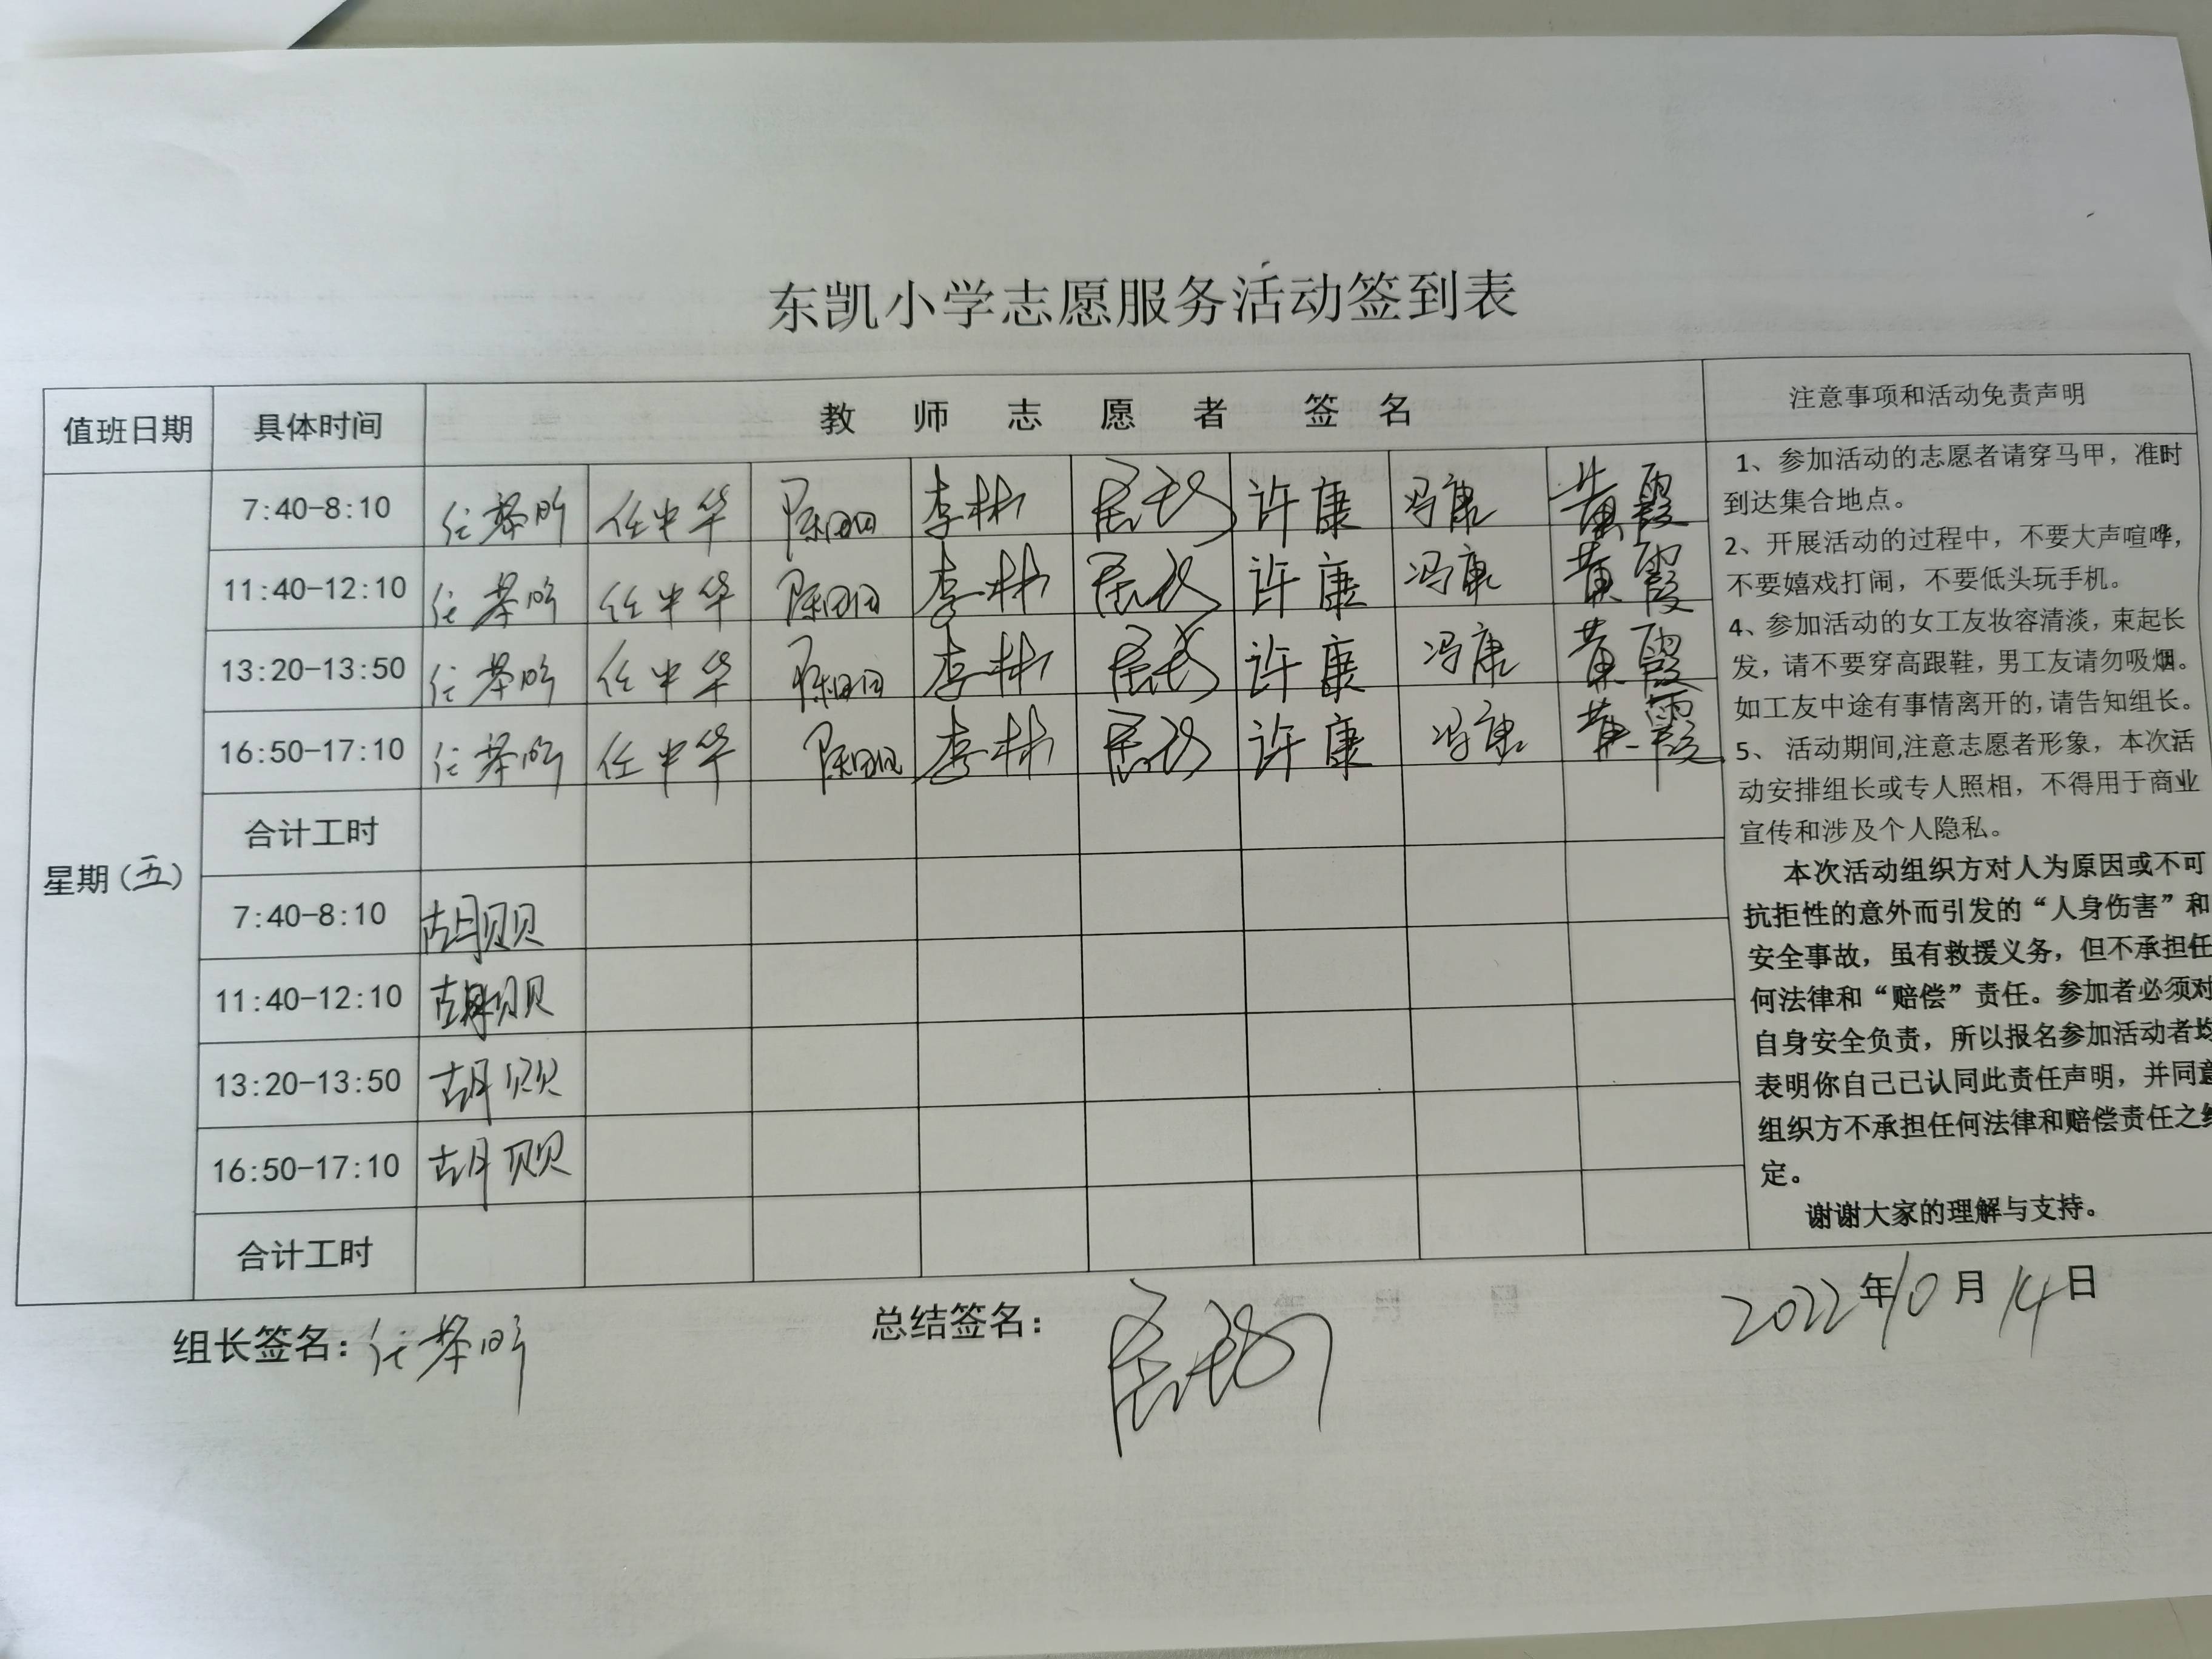 东凯小学志愿服务活动签到表
值班日期 具体时间 教师志愿者签名 注意事项和活动免责声明
星期(五)
7:40-8:10 任 任中华 陈田田 李林 许康 冯康 黄霞
11:40-12:10 任 任中华 陈田田 李林 许康 冯康 黄霞
13:20-13:50 任 任中华 陈田田 李林 许康 冯康 黄霞
16:50-17:10 任 任中华 陈田田 李林 许康 冯康 黄霞
合计工时
7:40-8:10 胡贝贝
11:40-12:10 胡贝贝
13:20-13:50 胡贝贝
16:50-17:10 胡贝贝
合计工时
1、参加活动的志愿者请穿马甲，准时
到达集合地点。
2、开展活动的过程中，不要大声喧哗，
不要嬉戏打闹，不要低头玩手机。
4、参加活动的女工友妆容清淡，束起长
发，请不要穿高跟鞋，男工友请勿吸烟。
如工友中途有事情离开的,请告知组长。
5、 活动期间,注意志愿者形象，本次活
动安排组长或专人照相，不得用于商业
宣传和涉及个人隐私。
本次活动组织方对人为原因或不可
抗拒性的意外而引发的“人身伤害”和
安全事故，虽有救援义务，但不承担任
何法律和“赔偿”责任。参加者必须对
自身安全负责，所以报名参加活动者均
表明你自己已认同此责任声明，并同意
组织方不承担任何法律和赔偿责任之约
定。
谢谢大家的理解与支持。
组长签名：任 总结签名： 2022年10月14日